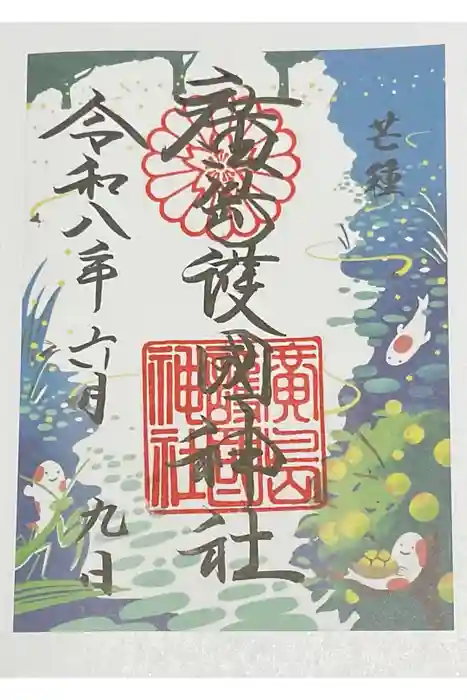 芒種
廣島護國神社
廣島護國神社
令和八年六月九日